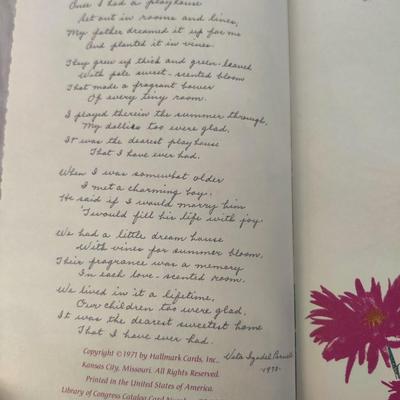 Once I had a playhouse
Set out in rooms and lines,
My father dreamed it up for me
And planted it in vines.
They grew up thick and green-leaved
With pale sweet-scented bloom
That made a fragrant bower
Of every tiny room.
I played therein the summer through,
My dollies too were glad,
It was the dearest playhouse
That I have ever had.
When I was somewhat older
I met a charming boy,
He said if I would marry him
'Twould fill his life with joy.
We had a little dream house
With vines for summer bloom,
Their fragrance was a memory
In each love-scented room.
We lived in it a lifetime,
Our children too were glad,
It was the dearest sweetest home
That I have ever had.
1973.
Copyright © 1971 by Hallmark Cards, Inc.,
Kansas City, Missouri. All Rights Reserved.
Printed in the United States of America.
Library of Congress Catalog Card Number